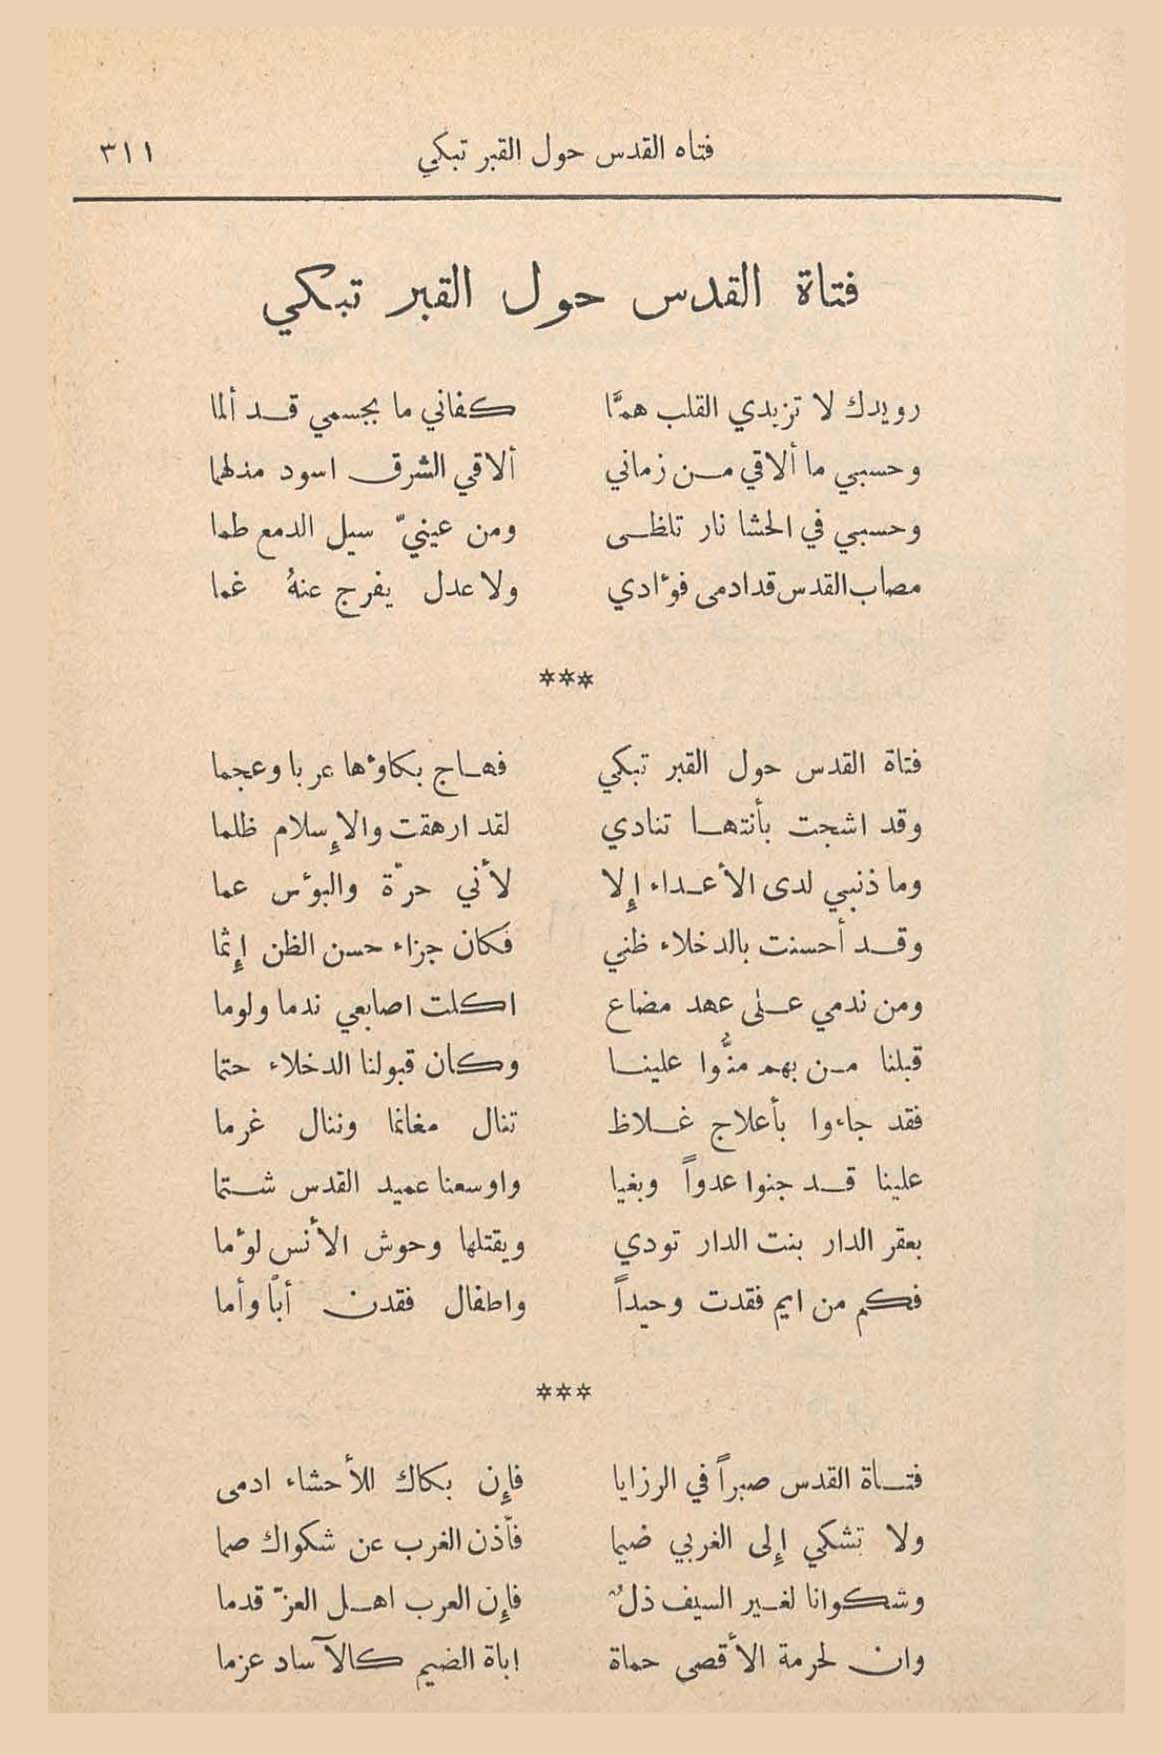 فتاه القدس حول القبر تبكي ٣١١
فتاة القدس حول القبر تبكي
رويدك لا تزيدي القلب همَّا كفاني ما بجسمي قد ألما
وحسبي ما ألاقي من زماني ألاقي الشرق اسود مدلهما
وحسبي في الحشا نار تلظى ومن عينيّ سيل الدمع طما
مصاب القدس قد ادمى فوءادي ولا عدل يفرج عنهُ غما
***
فتاة القدس حول القبر تبكي فهاج بكاوءها عربا وعجما
وقد اشجت بأنتها تنادي لقد ارهقت والإسلام ظلما
وما ذنبي لدى الأعداء إلا لأني حرّة والبوءس عما
وقد أحسنت بالدخلاء ظني فكان جزاء حسن الظن إثما
ومن ندمي على عهد مضاع اكلت اصابعي ندما ولوما
قبلنا من بهم منُّوا علينا وكان قبولنا الدخلاء حتما
فقد جاءوا بأعلاج غلاظ تنال مغانما وننال غرما
علينا قد جنوا عدواً وبغيا واوسعنا عميد القدس شتما
بعقر الدار بنت الدار تودي ويقتلها وحوش الأنس لوءما
فكم من ايم فقدت وحيداً واطفال فقدن أباً وأما
***
فتاة القدس صبراً في الرزايا فإن بكاك للأحشاء ادمى
ولا تشكي إلى الغربي ضيما فأذن الغرب عن شكواك صما
وشكوانا لغير السيف ذلٌ فإن العرب اهل العزّ قدما
وان لحرمة الأقصى حماة اباة الضيم كالآساد عزما